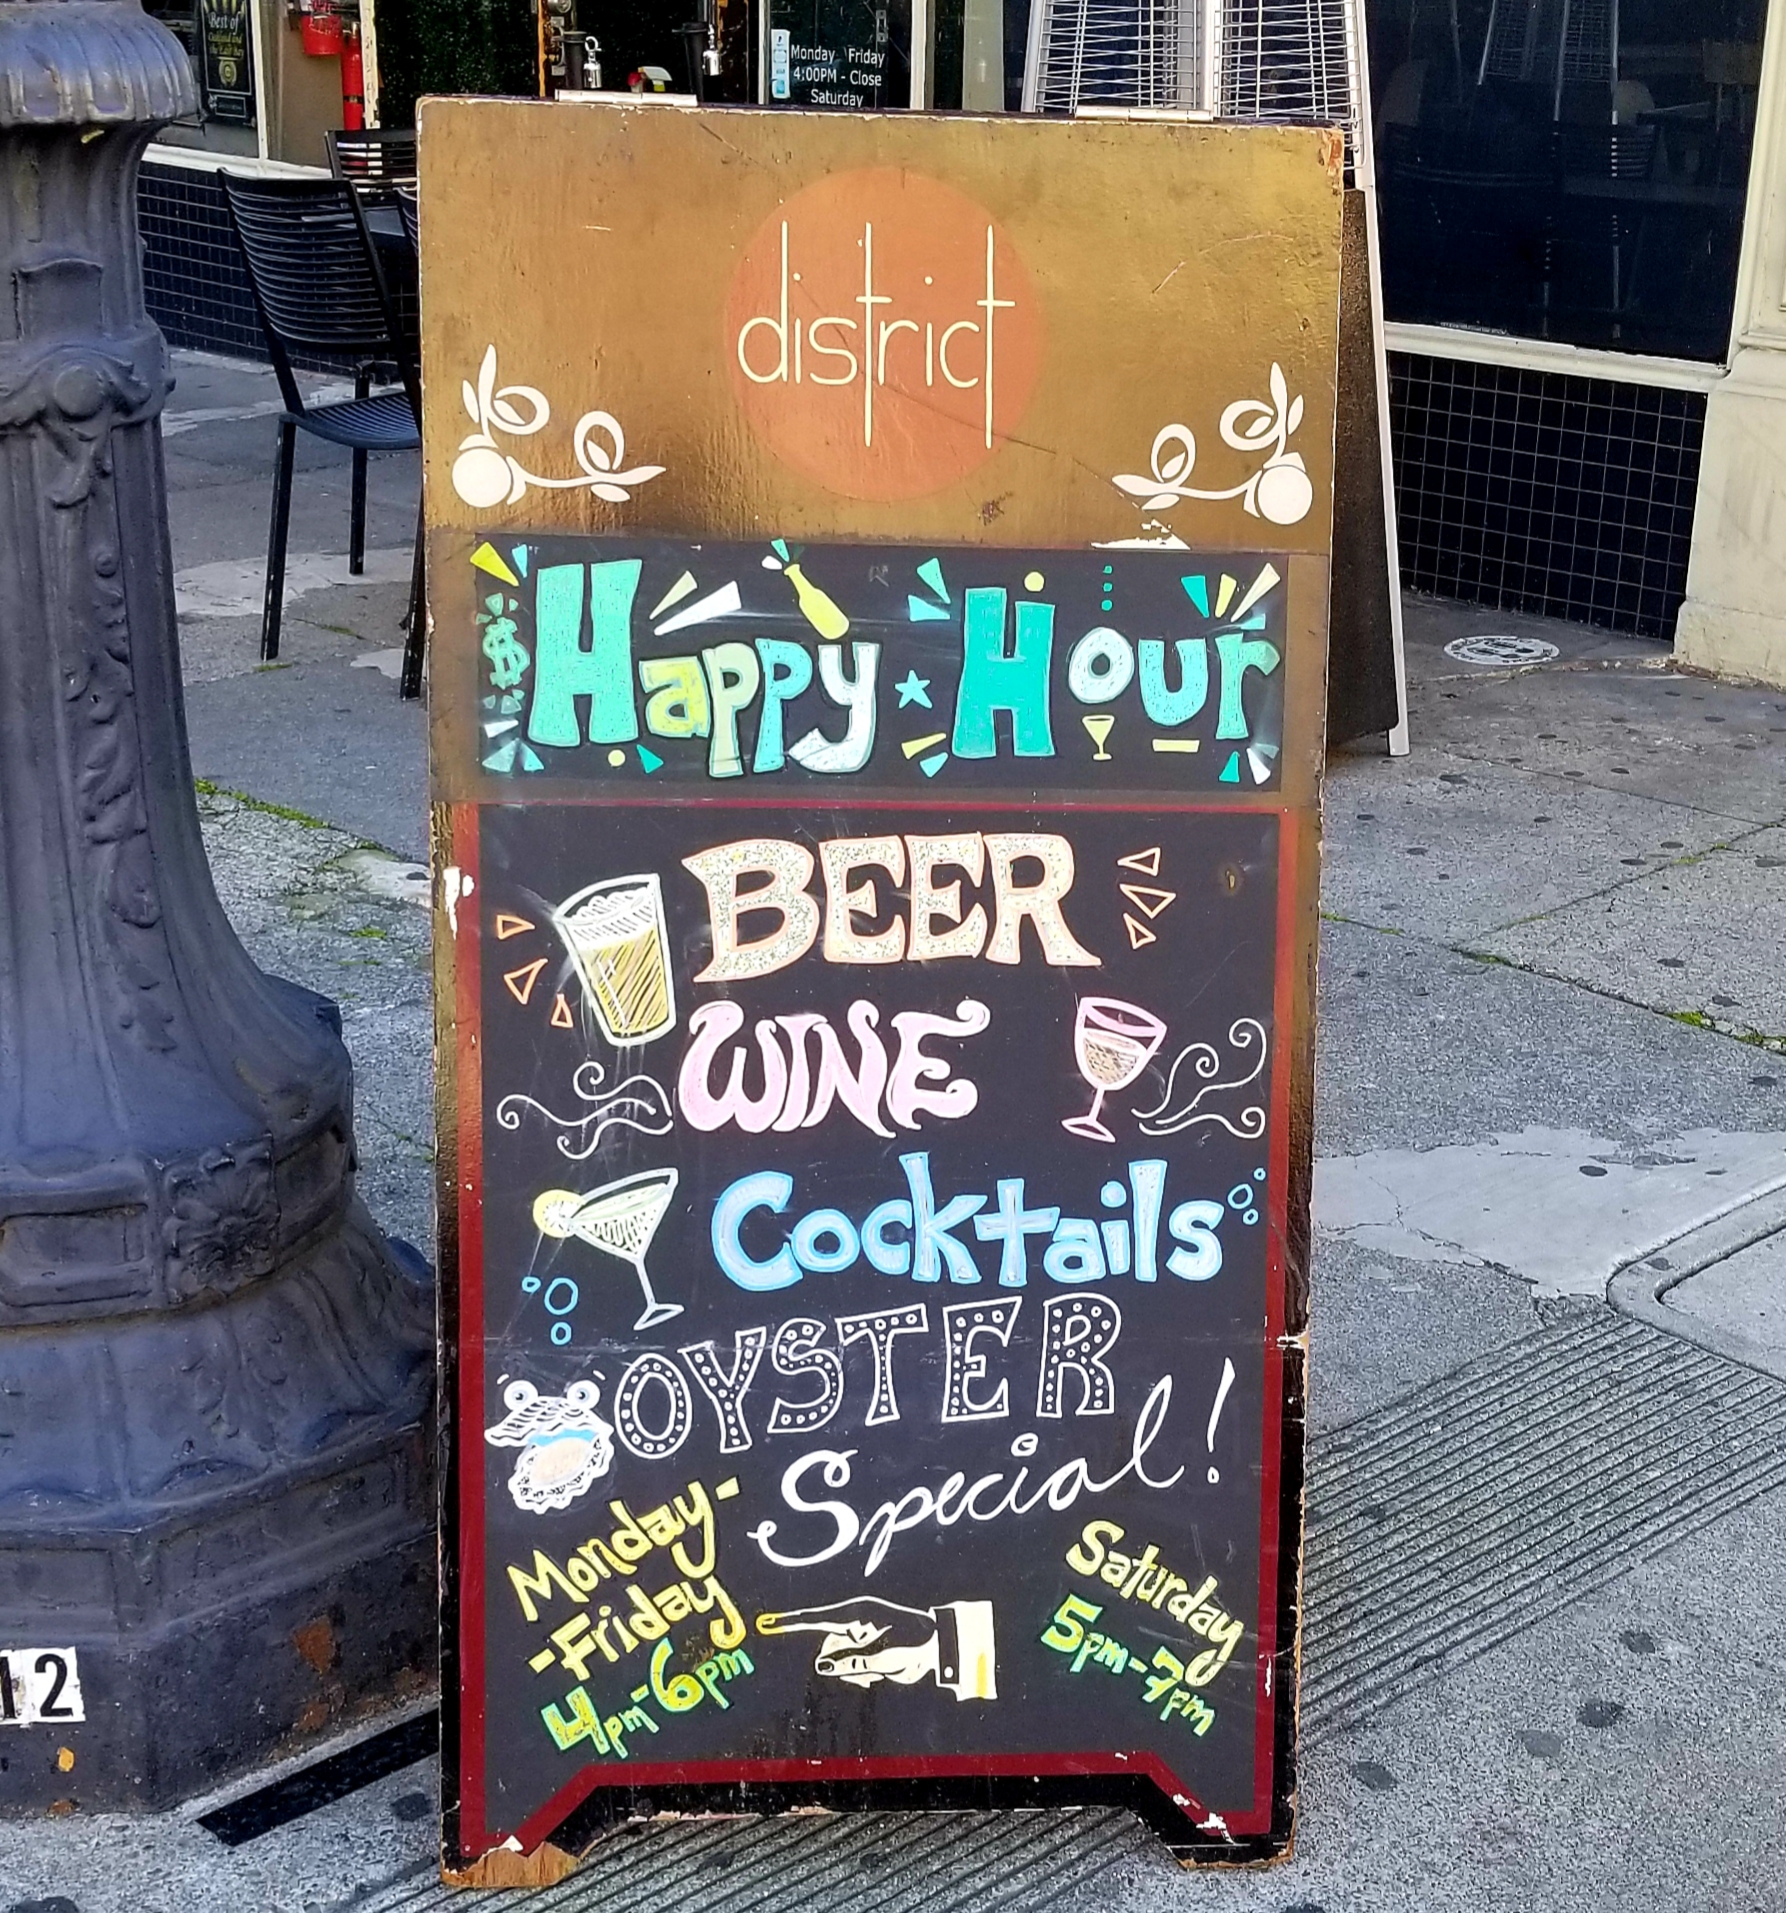 Best of
Monday Friday
4:00PM - Close
Saturday
district
$
Happy Hour
BEER
WINE
Cocktails
OYSTER
Special!
Monday-
-Friday
4pm-6pm
Saturday
5pm-7pm
12